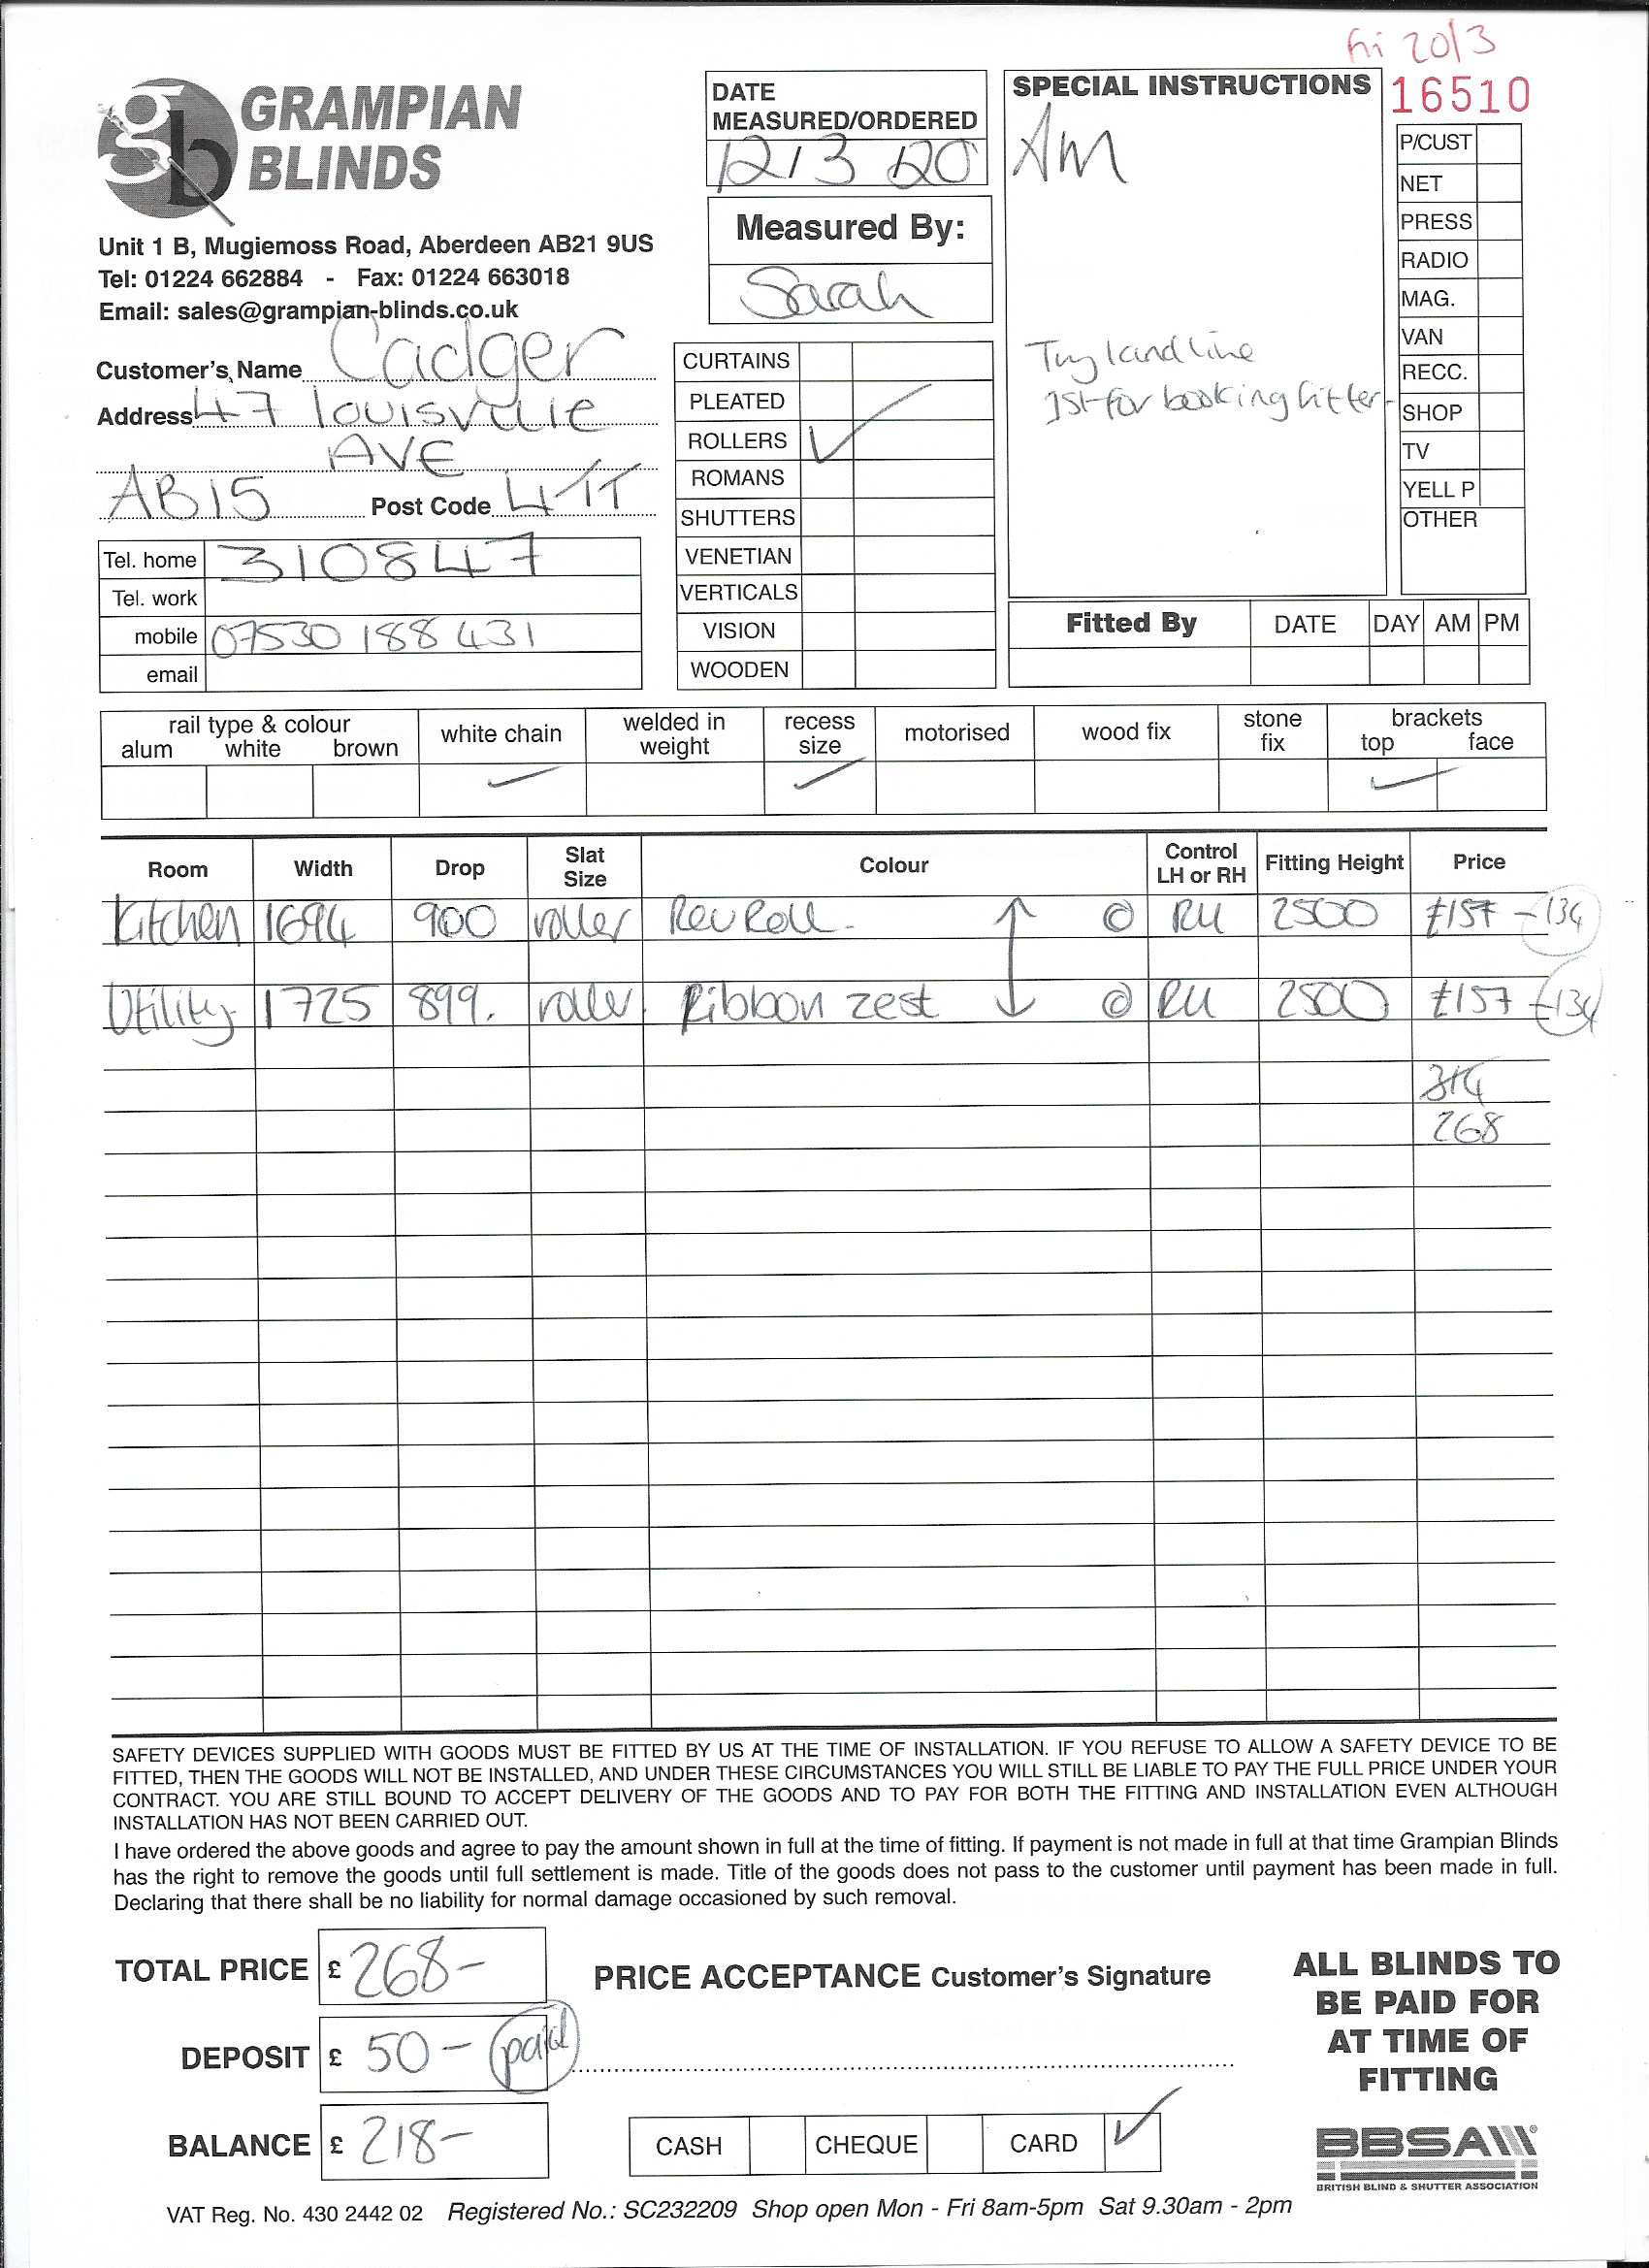 fri 20/3
GRAMPIAN
BLINDS
Unit 1 B, Mugiemoss Road, Aberdeen AB21 9US
Tel: 01224 662884 - Fax: 01224 663018
Email: sales@grampian-blinds.co.uk
DATE
MEASURED/ORDERED
12/3 20
Measured By:
Sarah
SPECIAL INSTRUCTIONS
AM
Try landline
1st for booking fitter
16510
P/CUST
NET
PRESS
RADIO
MAG.
VAN
RECC.
SHOP
TV
YELL P
OTHER
Customer's Name Cadger
Address 47 Louisville
AVE
AB15 Post Code 4TT
Tel. home 310847
Tel. work
mobile 07530 188 431
email
CURTAINS
PLEATED
ROLLERS ✓
ROMANS
SHUTTERS
VENETIAN
VERTICALS
VISION
WOODEN
Fitted By DATE DAY AM PM
rail type & colour
alum white brown
white chain ✓
welded in
weight
recess
size ✓
motorised
wood fix
stone
fix
brackets
top face
✓
Room Width Drop Slat Size Colour Control LH or RH Fitting Height Price
Kitchen 1694 900 roller RevRoll. ↑ © RH 2500 £157 - 134
Utility 1725 899. roller Ribbon zest ↓ © RH 2500 £157 - 134
314
268
SAFETY DEVICES SUPPLIED WITH GOODS MUST BE FITTED BY US AT THE TIME OF INSTALLATION. IF YOU REFUSE TO ALLOW A SAFETY DEVICE TO BE
FITTED, THEN THE GOODS WILL NOT BE INSTALLED, AND UNDER THESE CIRCUMSTANCES YOU WILL STILL BE LIABLE TO PAY THE FULL PRICE UNDER YOUR
CONTRACT. YOU ARE STILL BOUND TO ACCEPT DELIVERY OF THE GOODS AND TO PAY FOR BOTH THE FITTING AND INSTALLATION EVEN ALTHOUGH
INSTALLATION HAS NOT BEEN CARRIED OUT.
I have ordered the above goods and agree to pay the amount shown in full at the time of fitting. If payment is not made in full at that time Grampian Blinds
has the right to remove the goods until full settlement is made. Title of the goods does not pass to the customer until payment has been made in full.
Declaring that there shall be no liability for normal damage occasioned by such removal.
TOTAL PRICE £ 268-
DEPOSIT £ 50- paid
BALANCE £ 218-
PRICE ACCEPTANCE Customer's Signature
CASH CHEQUE CARD ✓
ALL BLINDS TO
BE PAID FOR
AT TIME OF
FITTING
BBSA
BRITISH BLIND & SHUTTER ASSOCIATION
VAT Reg. No. 430 2442 02 Registered No.: SC232209 Shop open Mon - Fri 8am-5pm Sat 9.30am - 2pm